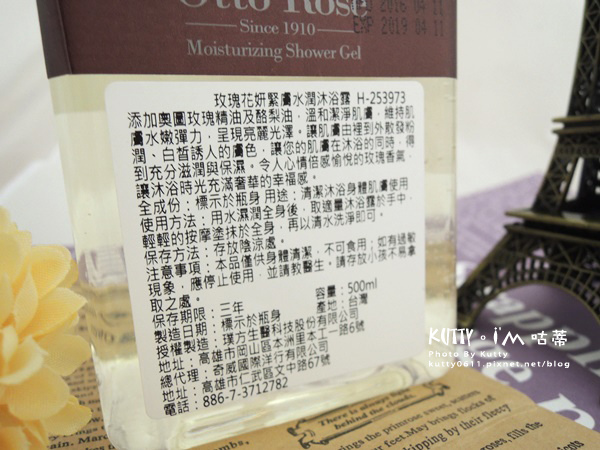 Otto Rose
2016 04 11
EXP 2019 04 11
Since 1910
Moisturizing Shower Gel
玫瑰花妍緊膚水潤沐浴露 H-253973
添加奧圖玫瑰精油及酪梨油，溫和潔淨肌膚，維持肌
膚水嫩彈力，呈現亮麗光澤。讓肌膚由裡到外散發粉
潤、白皙誘人的膚色，讓您的肌膚在沐浴的同時，得
到充分滋潤與保濕。令人心情倍感愉悅的玫瑰香氣，
讓沐浴時光充滿奢華的幸福感。
全成份：標示於瓶身 用途：清潔沐浴身體肌膚使用
使用方法：用水濕潤全身後，取適量沐浴露於手中，
輕輕的按摩塗抹於全身，再以清水洗淨即可。
保存方法：存放陰涼處。
注意事項：本品僅供身體清潔，不可食用；如有過敏
現象，應停止使用，並請教醫生。請存放小孩不易拿
取之處。
保存期限：三年 容量：500ml
製造日期：標示於瓶身 產地：台灣
授權製造：璞方生醫科技股份有限公司
地址：高雄市岡山區本洲里本工一路6號
總代理：奇威國際洋行有限公司
地址：高雄市仁武區文中路67號
電話：886-7-3712782
KUTTY。I'M 咕蒂
Photo By Kutty
kutty0a11.pixnet.net/blog
There is always